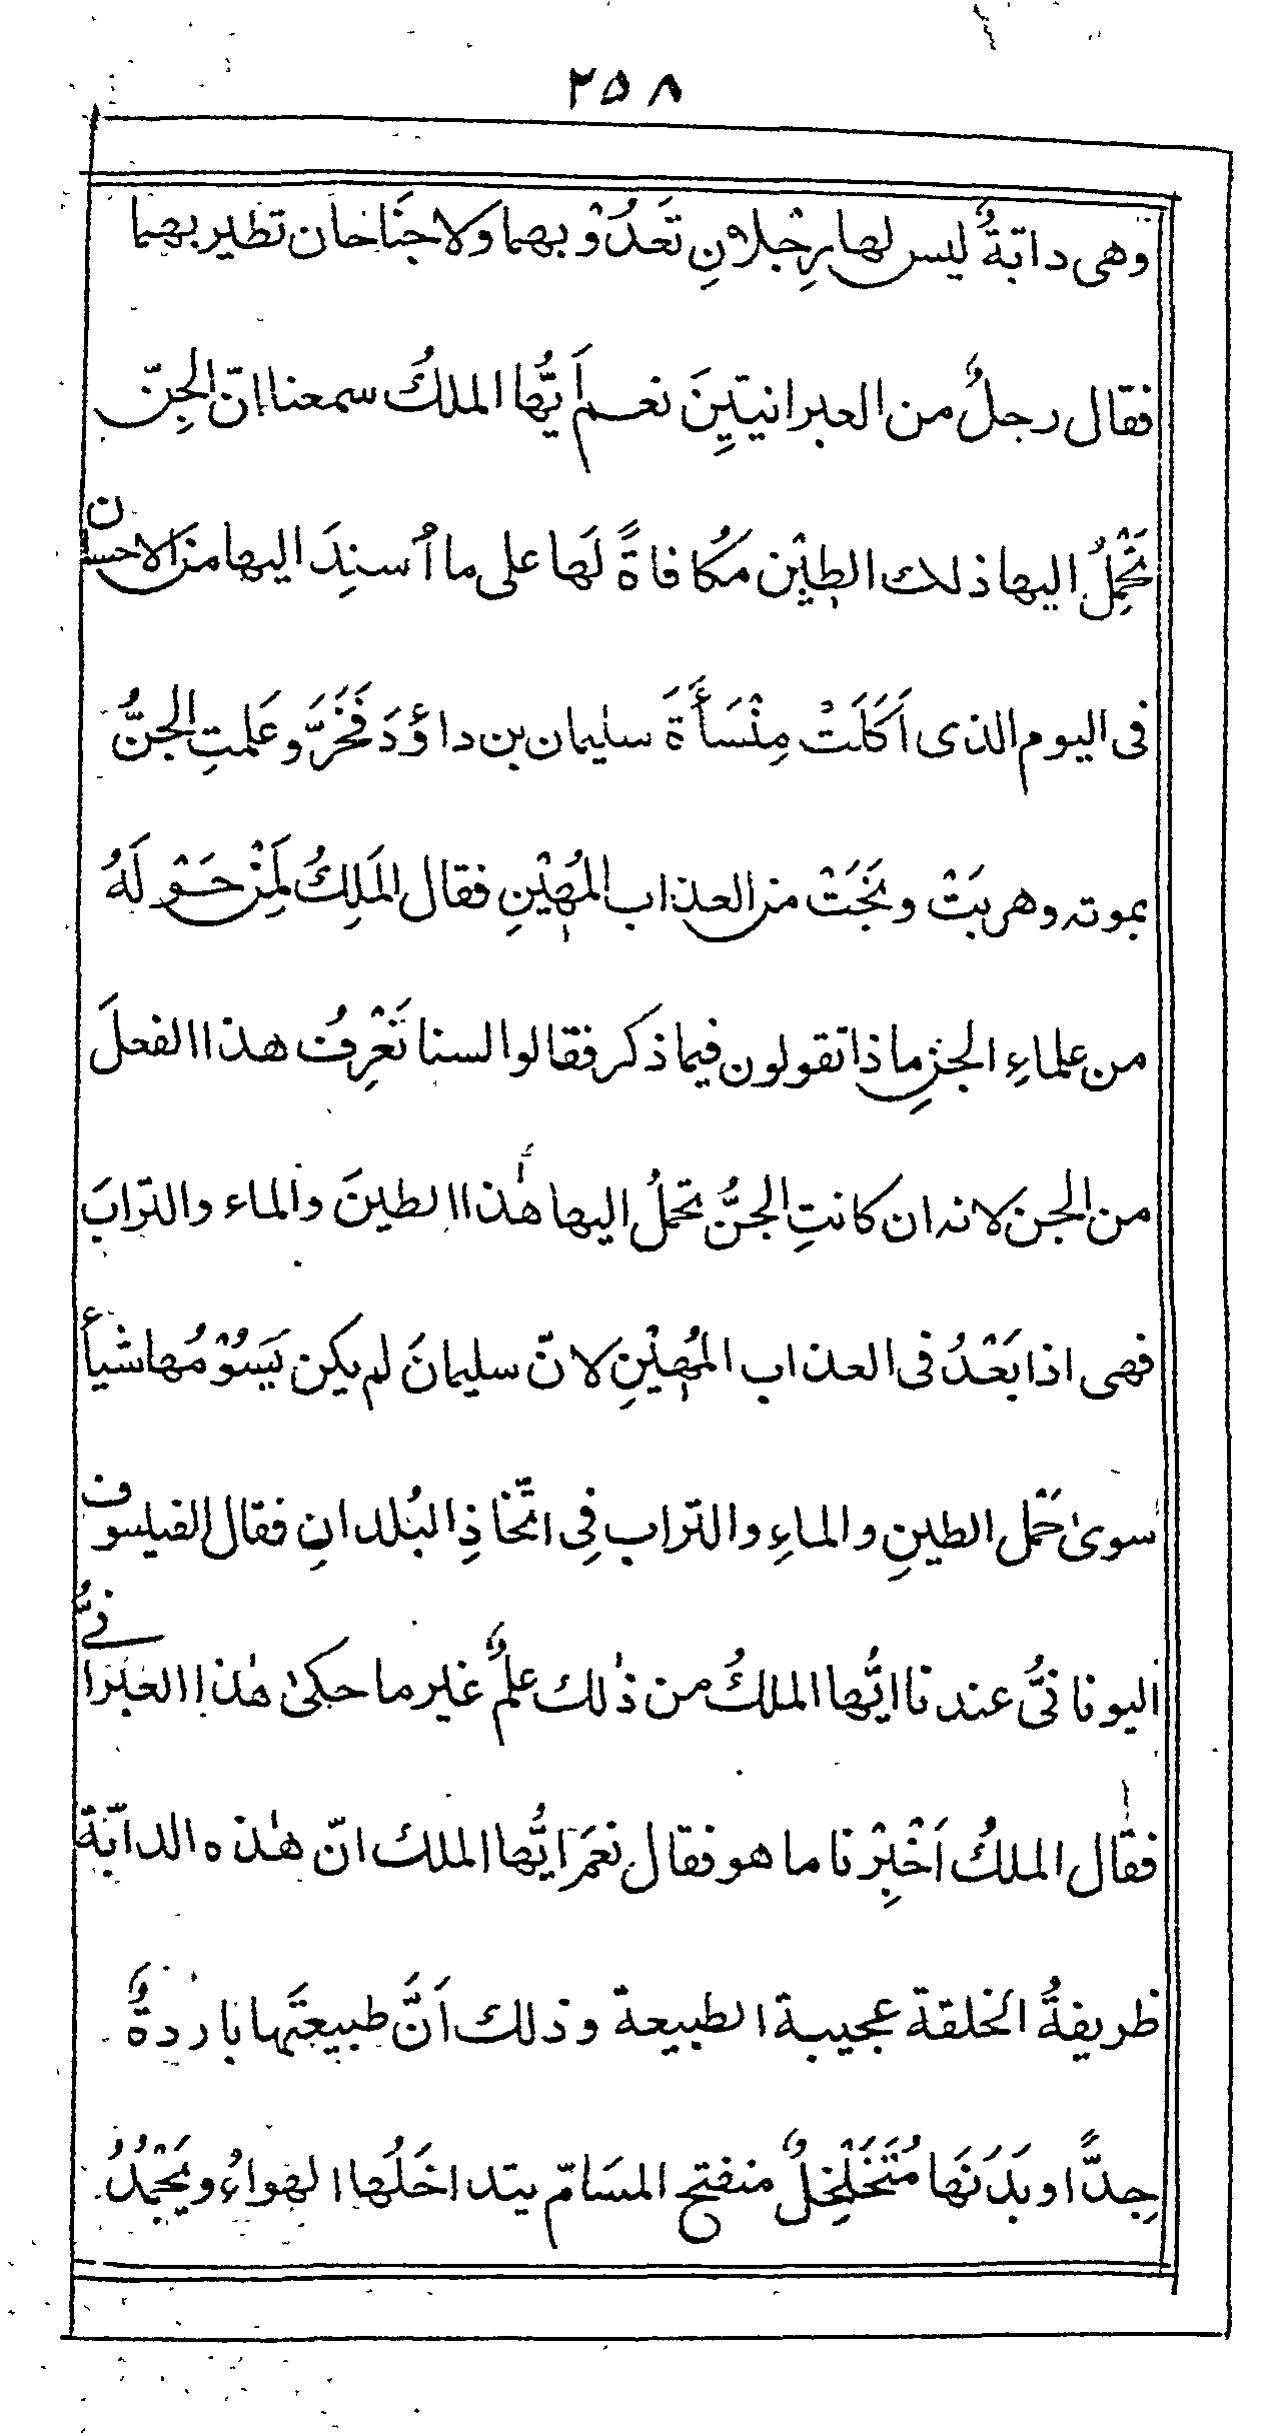 ٢٥٨
وهى دابّةٌ ليس لها رِجْلانِ تَعْدُوْ بهما ولا جنَاحان تطير بهما
فقال رجلٌ من العبرانيّيِنَ نعم أيُّها الملكُ سمعنا انّ الجِنّ
تَحْمِلُ اليها ذلك الطِيْن مكُافاةً لَها على ما اُسنِدَ اليها من الاحسان
فى اليوم الذى اَكَلَتْ مِنْسَأَةَ سليمان بن داؤدَ فَخَرَّ وعَلمتِ الجنُّ
بموته وهربَتْ ونَجَتْ من العذاب المُهِيْنِ فقال المَلِكُ لِمَنْ حَوْلَهُ
من علماءِ الجنِ ماذا تقولون فيما ذكر فقالوا لسنا نَعْرِفُ هذا الفعلَ
من الجن لانه ان كانتِ الجنُّ تحملُ اليها هٰذا الطينَ والماء والترابَ
فهى اذا بَعْدُ فى العذاب المُهِيْنِ لانّ سليمانَ لم يكن يَسُوْمُها شيأً
سوىٰ حَمْل الطينِ والماءِ والتراب فِى اتّخاذِ البُلدانِ فقال الفيلسوف
اليونانىُّ عندنا ايُّها الملكُ من ذٰلك علمٌ غير ما حكىٰ هٰذا العبرانىُّ
فقال الملكُ اَخْبِرْنا ما هو فقال نعَم ايُّها الملك انّ هٰذه الدابّة
ظريفةُ الخلقة عجيبة الطبيعة وذلك اَنَّ طبيعتَها باردةٌ
جِدًّا وبَدَنَها مُتَخَلْخِلٌ منفتح المسَامّ يتداخَلُها الهواءُ ويَجْمُدُ